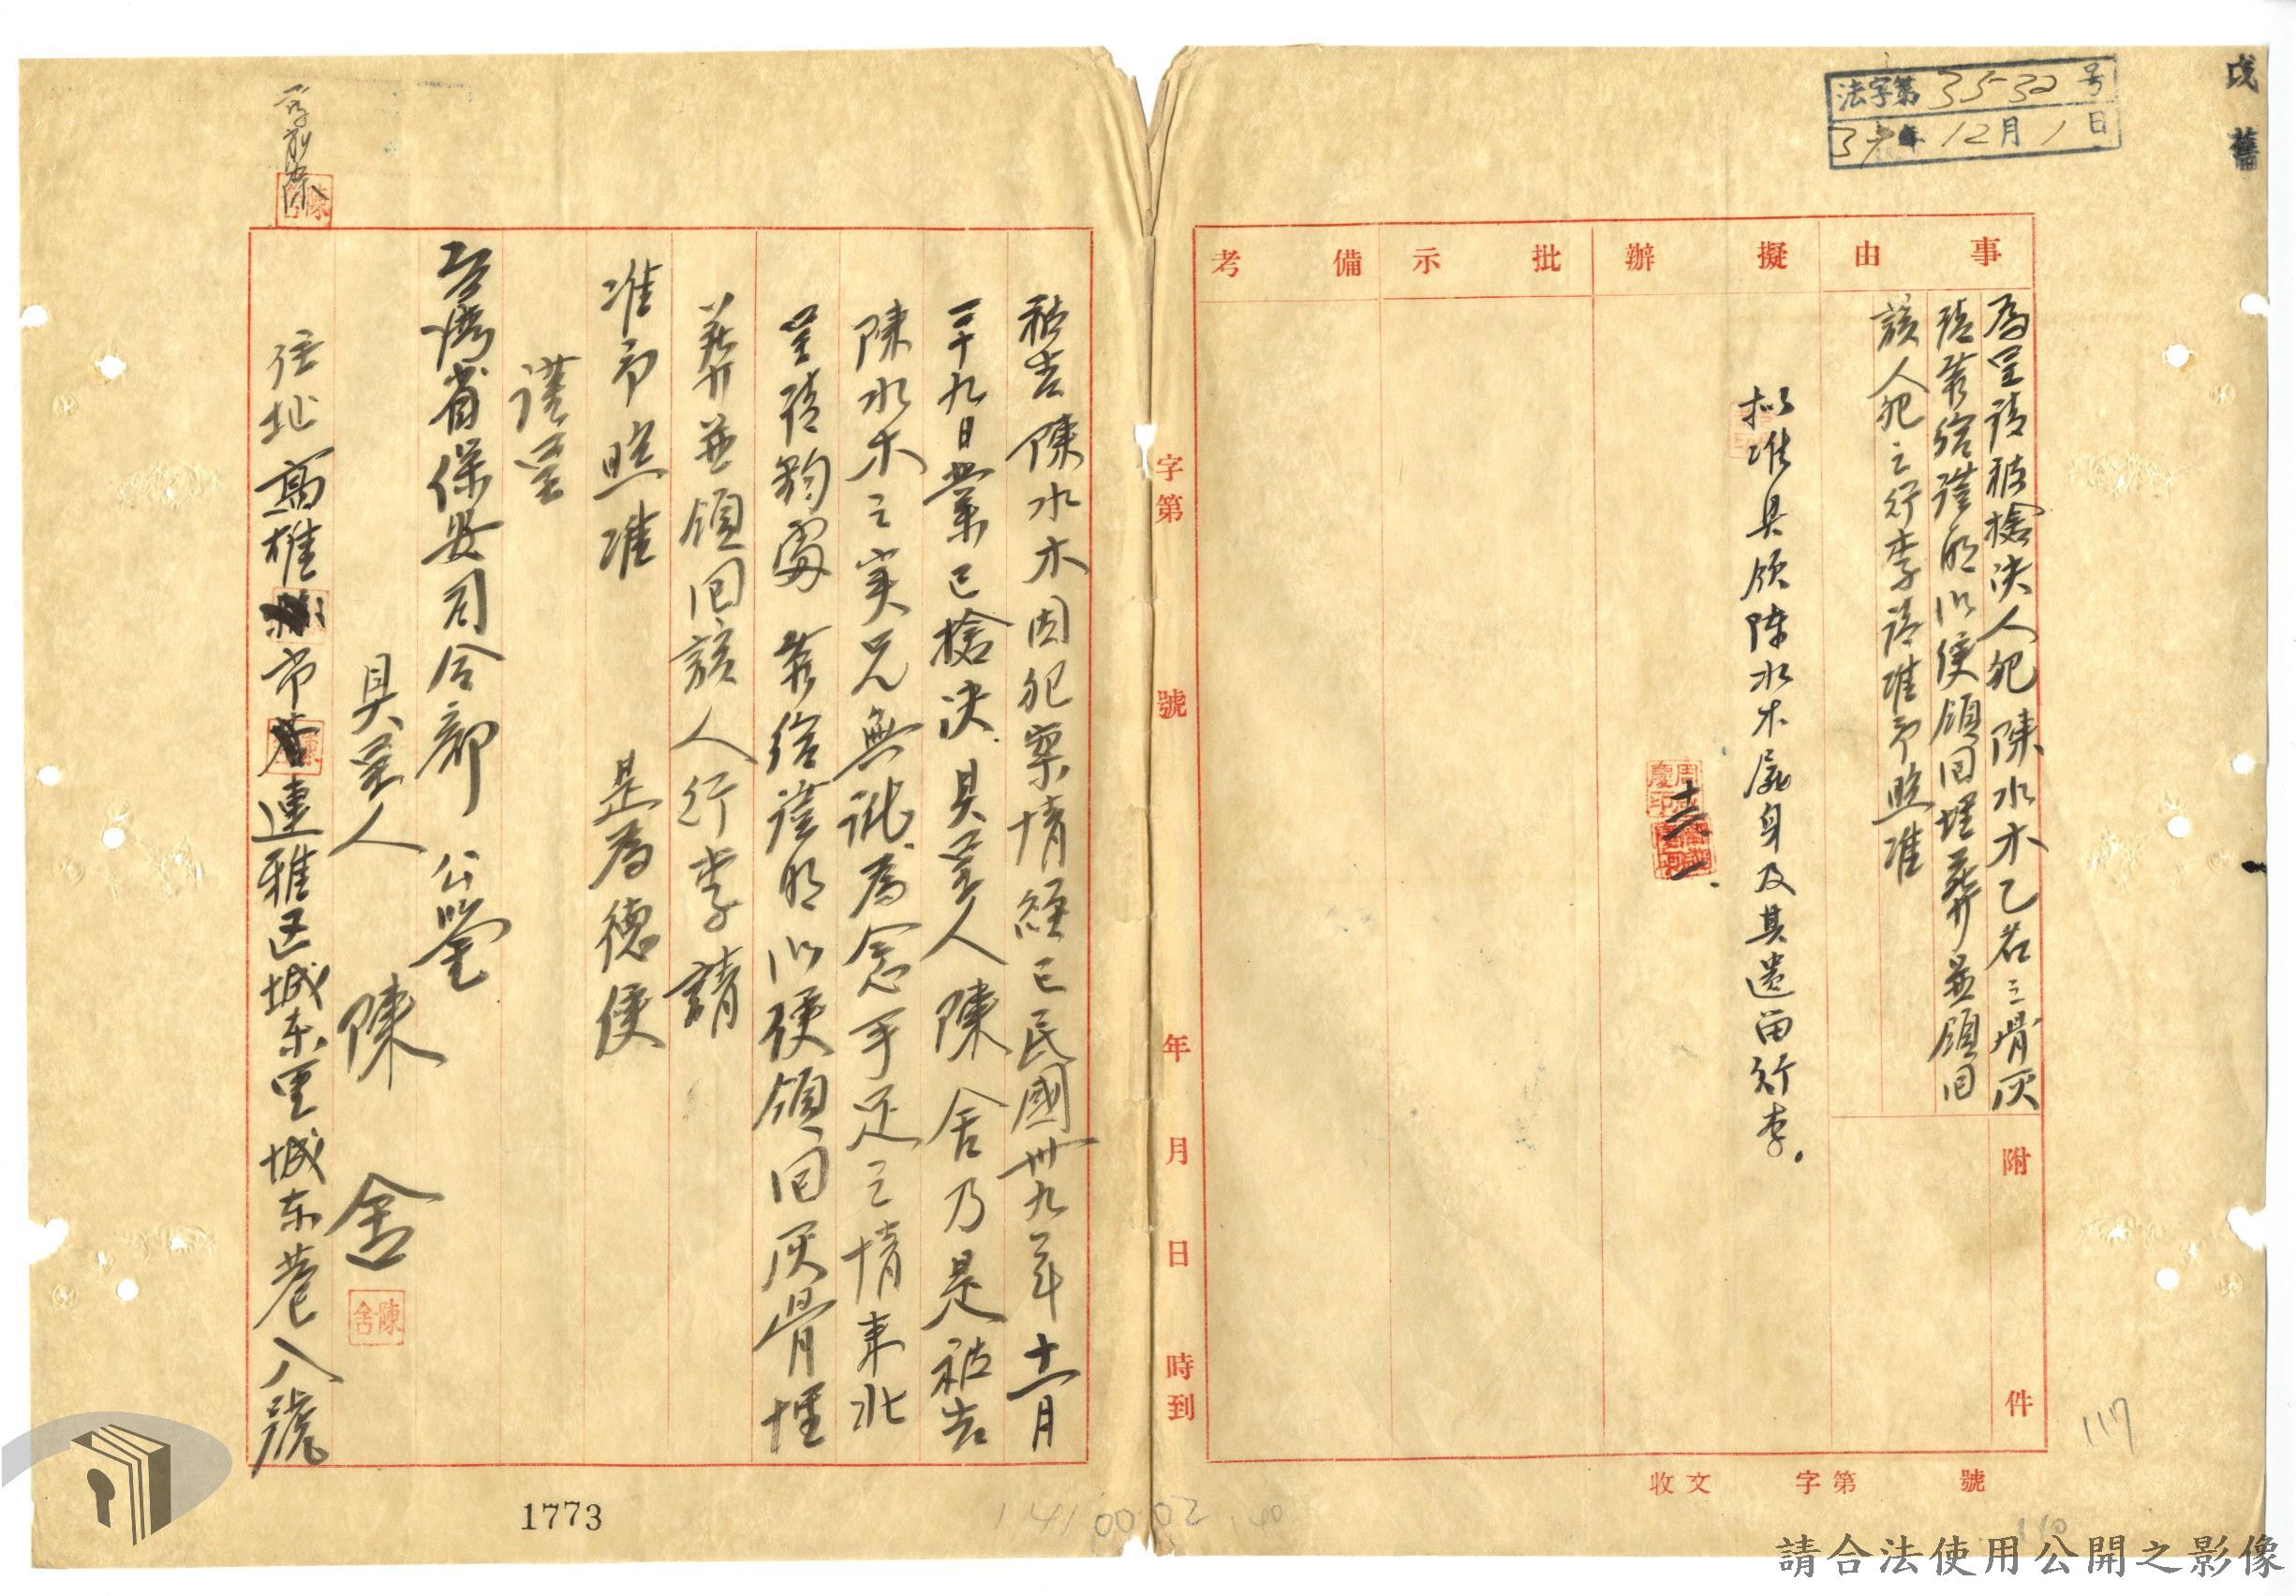 戊
舊
法字第3530号
39年12月1日
事由
擬辦
批示
備考
為呈請被槍決人犯陳水木乙名之骨灰
請發給證明以便領回埋葬並領回
該人犯之行李請准予照准
附件
擬准具領陳水木屍身及其遺留行李.
十二、一.
字第 號 年 月 日 時到
收文 字第 號
117
被告陳水木因犯案情經已民國卅九年十一月
二十九日業已槍決具呈人陳舍乃是被告
陳水木之実兄無訛為念手足之情来北
呈請鈞處 發給證明以便領回灰骨埋
葬並領回該人行李請
准予照准 是為德便
謹呈
台灣省保安司令部 公鑒
具呈人 陳 舍
陳舍
住址高雄市連雅区城东里城东巷八號
1773
請合法使用公開之影像